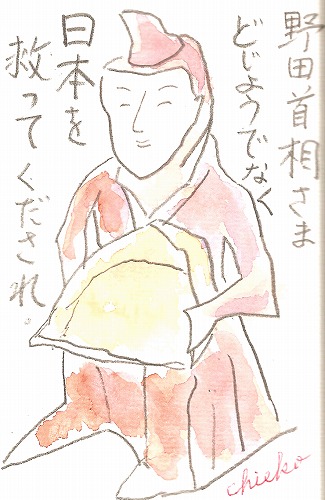 野田首相さま
どじょうでなく
日本を
救ってくだされ。
chieko